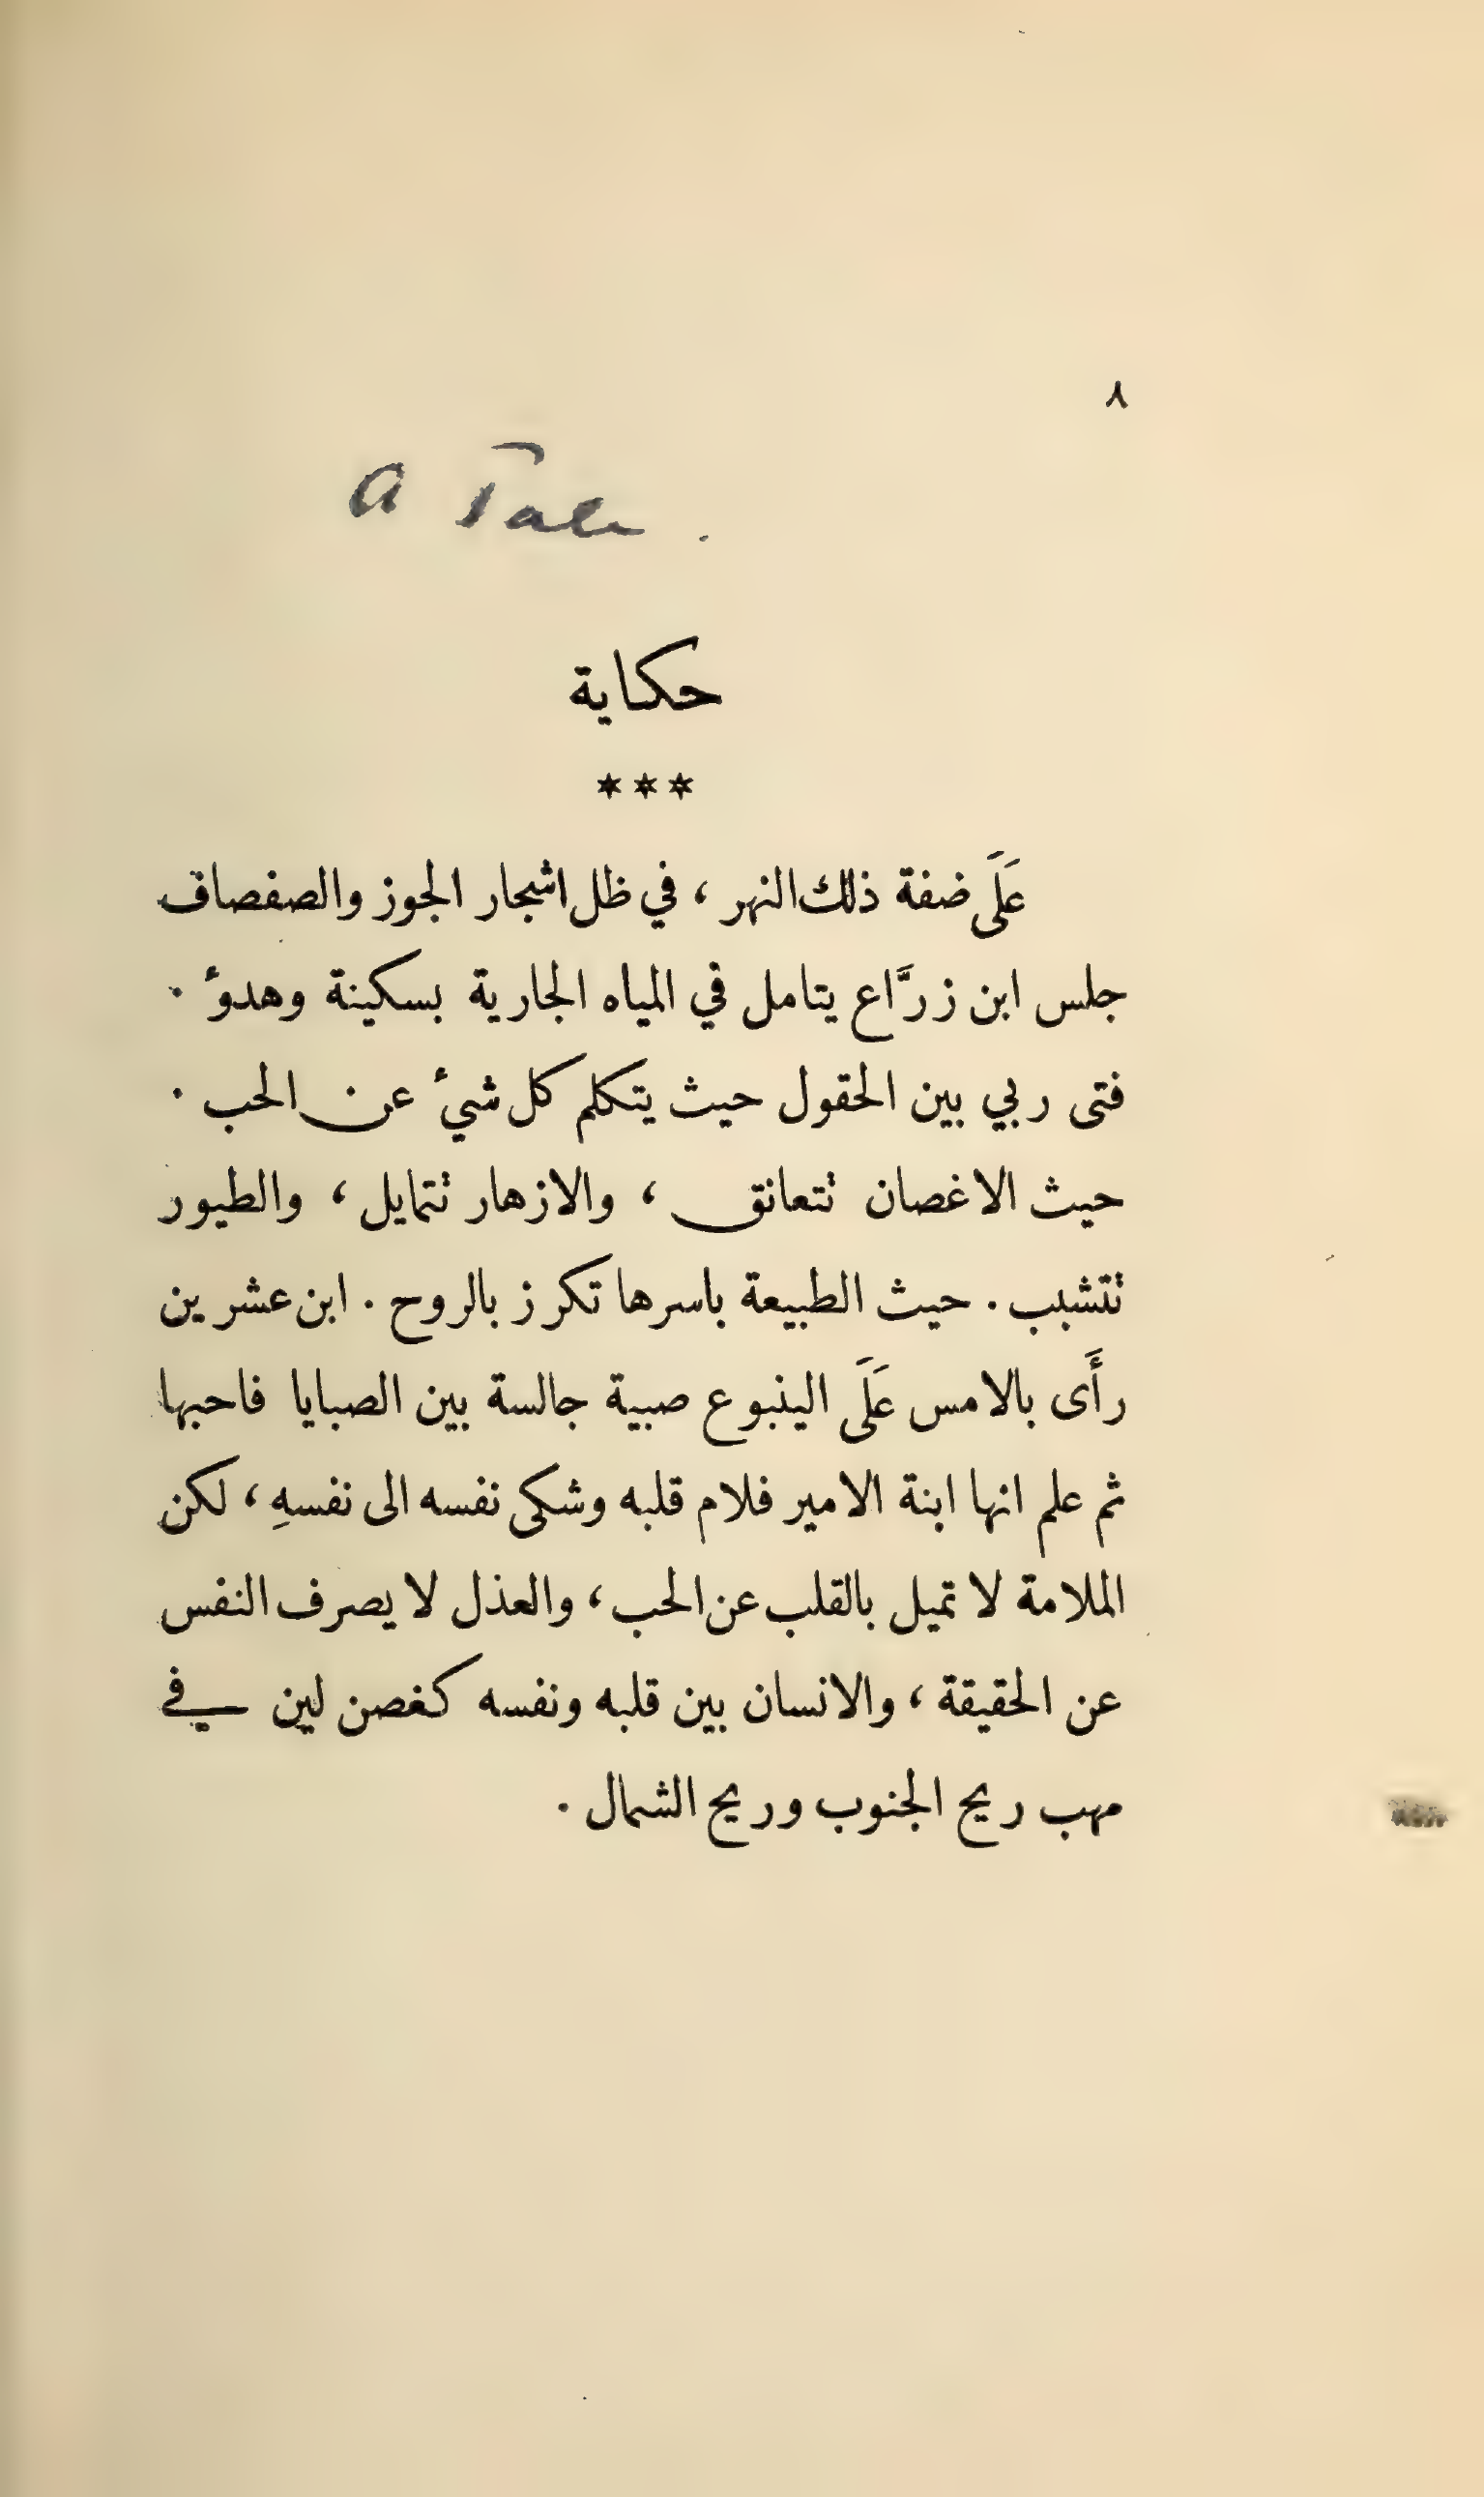 ٨
a Tale .
حكاية
***
عَلَى ضفة ذلك النهر ، في ظل اشجار الجوز والصفصاف
جلس ابن زرَّاع يتامل في المياه الجارية بسكينة وهدوٴ .
فتى ربي بين الحقول حيث يتكلم كل شيٴ عن الحب .
حيث الاغصان تتعانق ، والازهار تتمايل ، والطيور
تتشبب . حيث الطبيعة باسرها تكرز بالروح . ابن عشرين
رأَى بالامس عَلَى الينبوع صبية جالسة بين الصبايا فاحبها
ثم علم انها ابنة الامير فلام قلبه وشكى نفسه الى نفسهِ ، لكن
الملامة لا تميل بالقلب عن الحب ، والعذل لا يصرف النفس
عن الحقيقة ، والانسان بين قلبه ونفسه كغصن لين في
مهب ريح الجنوب وريح الشمال .